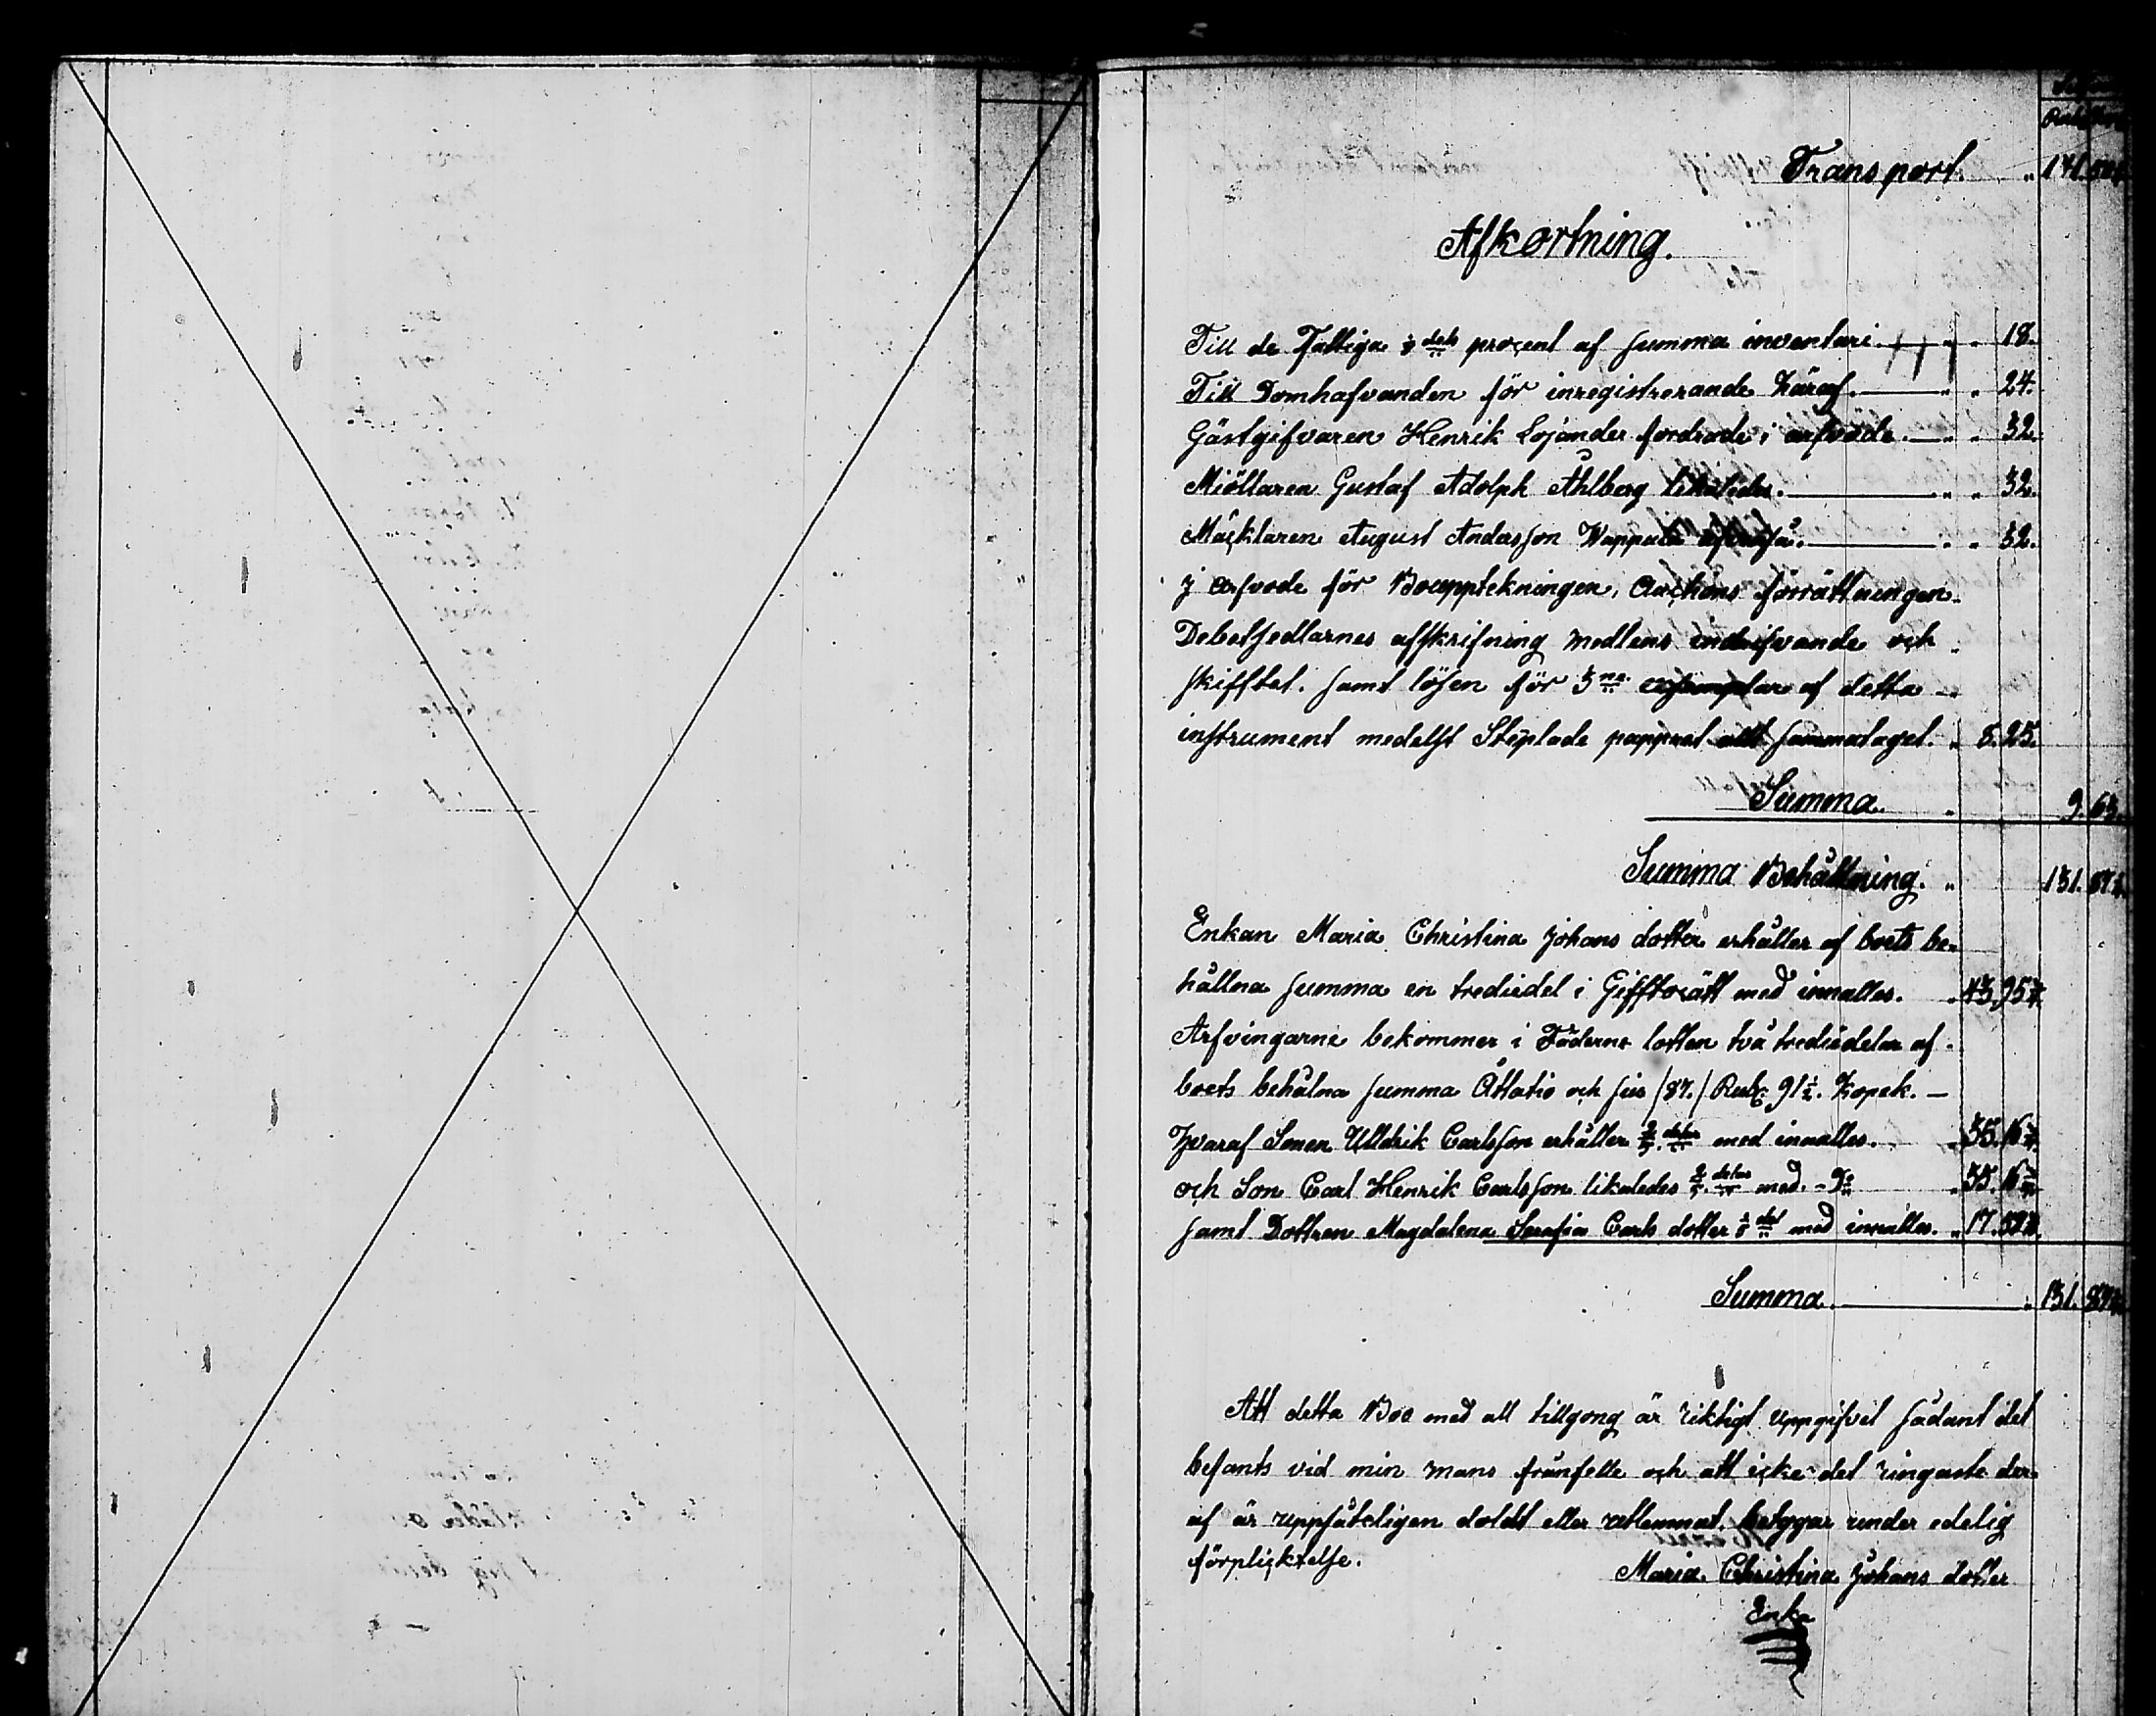 Transport. " 141.50½
Afkortning.
Till de Fattiga ⅛ dels procent af summa inventari. " " 18.
Till Domhafvanden för inregistrerande häraf. " " 24.
Gästgifvaren Henrik Lojander fordrade i arfvode. " " 32.
Miöllaren Gustaf Adolph Ahlberg likaledes. " " 32.
Mäcklaren August Andersson Wappala " " 32.
J arfvode för Bouppteckningen, Auctions förrättningen
Debetsedlarnes afskrifning medlens indrifvande och
skifftet. samt lösen för 3ne exemplar af detta
instrument medelst Steplade pappret allt sammataget. " 8.25.
Summa. " 9.63.
Summa Behållning. " 131.87½
Enkan Maria Christina Johans dotter erhåller af boets be-
hållna summa en trediedel i Gifftorätt med innalles. " 43.95¾
Arfvingarne bekommer i Fäderne lotten två trediedelar af
boets behålna summa Åttatio och sju /87./ Rub: 91½. Kopek. —
Hvaraf Sonen Ulldrik Carlsson erhåller ⅖ delar med innalles. " 35.16
och Son Carl Henrik Carlsson likaledes ⅖ delar med - Do " 35.16
samt Dottren Magdalena Serafia Carls dotter ⅕ del med innalles. " 17.58
Summa. " 131.87½
Att detta Boe med all tillgong är riktigt uppgifvet sådant det
befants vid min mans frånfelle och att icke det ringaste der-
af är uppsåteligen doldt eller utlemnat, betygar under edelig
förplicktelse.
Maria Christina Johans dotter
Enka